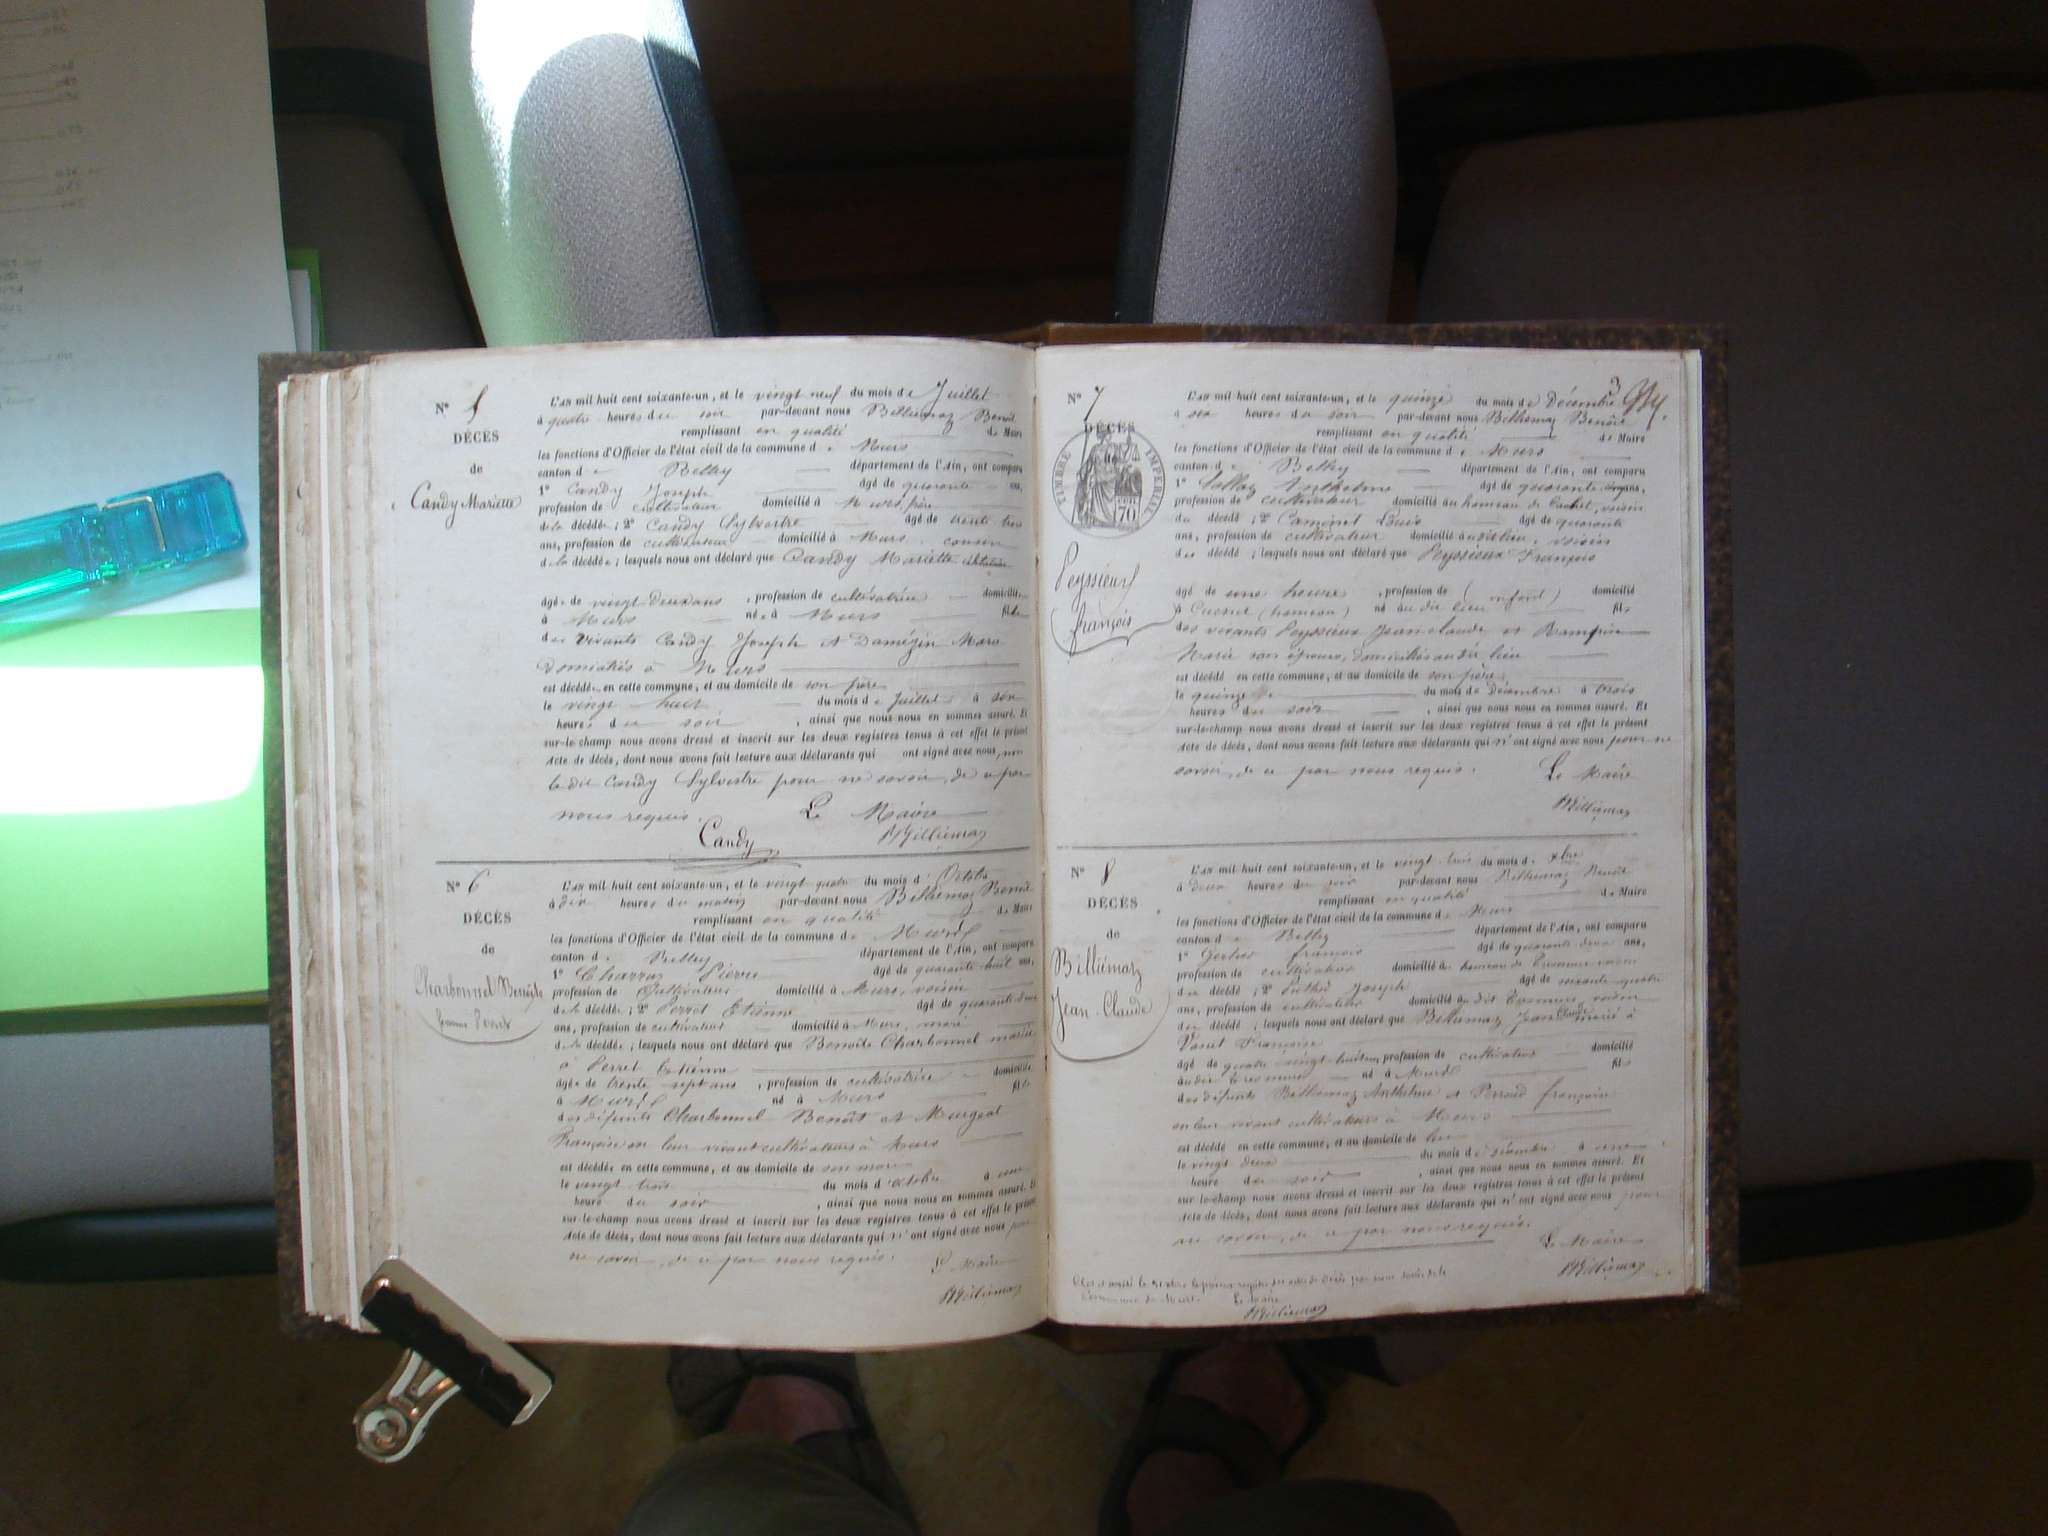 N° 5
DÉCÈS
de
Candy Mariette
L'an mil huit cent soixante-un, et le vingt neuf du mois de Juillet
à quatre heures du soir par-devant nous Billiemaz Benoit
remplissant en qualité de Maire
les fonctions d'Officier de l'état civil de la commune de Murs
canton de Belley département de l'Ain, ont comparu
1° Candy Joseph âgé de quarante ans,
profession de cultivateur domicilié à Murs, père
de la décédée ; 2° Candy Sylvestre âgé de trente trois
ans, profession de cultivateur domicilié à Murs, cousin
de la décédée ; lesquels nous ont déclaré que Candy Mariette célibataire
âgée de vingt deux ans, profession de cultivatrice domiciliée
à Murs née à Murs fille
des vivants Candy Joseph et Damézin Marie
domiciliés à Murs
est décédée en cette commune, et au domicile de son père
le vingt huit du mois de Juillet à six
heures du soir, ainsi que nous nous en sommes assuré. Et
sur-le-champ nous avons dressé et inscrit sur les deux registres tenus à cet effet le présent
Acte de décès, dont nous avons fait lecture aux déclarants qui ont signé avec nous, non
le dit Candy Sylvestre pour ne savoir, de ce par
nous requis. Le Maire
Candy Billiemaz
N° 6
DÉCÈS
de
Charbonnel Benoîte
femme Perret
L'an mil huit cent soixante-un, et le vingt quatre du mois d'Octobre
à dix heures du matin par-devant nous Billiemaz Benoit
remplissant en qualité de Maire
les fonctions d'Officier de l'état civil de la commune de Murs
canton de Belley département de l'Ain, ont comparu
1° Charraz Pierre âgé de quarante huit ans,
profession de Cultivateur domicilié à Murs, voisin
de la décédée ; 2° Perret Etienne âgé de quarante deux
ans, profession de cultivateur domicilié à Murs, mari
de la décédée ; lesquels nous ont déclaré que Benoîte Charbonnel mariée
à Perret Etienne
âgée de trente sept ans, profession de cultivatrice domiciliée
à Murs né à Murs fille
des défunts Charbonnel Benoît et Murgeat
Françoise en leur vivant cultivateurs à Murs
est décédée en cette commune, et au domicile de son mari
le vingt trois du mois d'octobre à une
heure du soir, ainsi que nous nous en sommes assuré. Et
sur-le-champ nous avons dressé et inscrit sur les deux registres tenus à cet effet le présent
Acte de décès, dont nous avons fait lecture aux déclarants qui n'ont signé avec nous pour
ne savoir, de ce par nous requis. Le Maire
Billiemaz
3
N° 7
DÉCÈS
TIMBRE IMPERIAL
70
Peyssieux
françois
L'an mil huit cent soixante-un, et le quinze du mois de Décembre
à six heures du soir par-devant nous Billiemaz Benoît
remplissant en qualité de Maire
les fonctions d'Officier de l'état civil de la commune de Murs
canton de Belley département de l'Ain, ont comparu
1° Sallaz Anthelme âgé de quarante ans,
profession de cultivateur domicilié au hameau de voisin
du décédé ; 2° Caminet Louis âgé de quarante
ans, profession de cultivateur domicilié au dit lieu, voisin
du décédé ; lesquels nous ont déclaré que Peyssieux François
âgé de une heure, profession de (enfant) domicilié
à (hameau) né au dit lieu fils
des vivants Peyssieux Jean claude et
Marie son épouse, domiciliés au dit lieu
est décédé en cette commune, et au domicile de son père
le quinze du mois de Décembre à trois
heures du soir, ainsi que nous nous en sommes assuré. Et
sur-le-champ nous avons dressé et inscrit sur les deux registres tenus à cet effet le présent
Acte de décès, dont nous avons fait lecture aux déclarants qui n'ont signé avec nous pour ne
savoir, de ce par nous requis. Le Maire
Billiemaz
N° 8
DÉCÈS
de
Billiémaz
Jean-Claude
L'an mil huit cent soixante-un, et le vingt trois du mois de Xbre
à deux heures du soir par-devant nous Billiemaz Benoît
remplissant en qualité de Maire
les fonctions d'Officier de l'état civil de la commune de Murs
canton de Belley département de l'Ain, ont comparu
1° françois âgé de quarante deux ans,
profession de cultivateur domicilié à hameau de voisin
du décédé ; 2° Joseph âgé de quatre
ans, profession de cultivateur domicilié au dit voisin
du décédé ; lesquels nous ont déclaré que Billiemaz Jean Claude marié à
Françoise
âgé de quatre vingt huit ans, profession de cultivateur domicilié
au dit né à Murs fils
des défunts Billiemaz Anthelme et Perraud françoise
en leur vivant cultivateurs à Murs
est décédé en cette commune, et au domicile de lui
le vingt deux du mois de décembre à une
heure du soir, ainsi que nous nous en sommes assuré. Et
sur-le-champ nous avons dressé et inscrit sur les deux registres tenus à cet effet le présent
Acte de décès, dont nous avons fait lecture aux déclarants qui n'ont signé avec nous pour
ne savoir, de ce par nous requis.
Le Maire
Billiemaz
Clos et arrêté le présent registre des actes de décès par nous maire de la
commune de Murs. Le Maire
Billiemaz